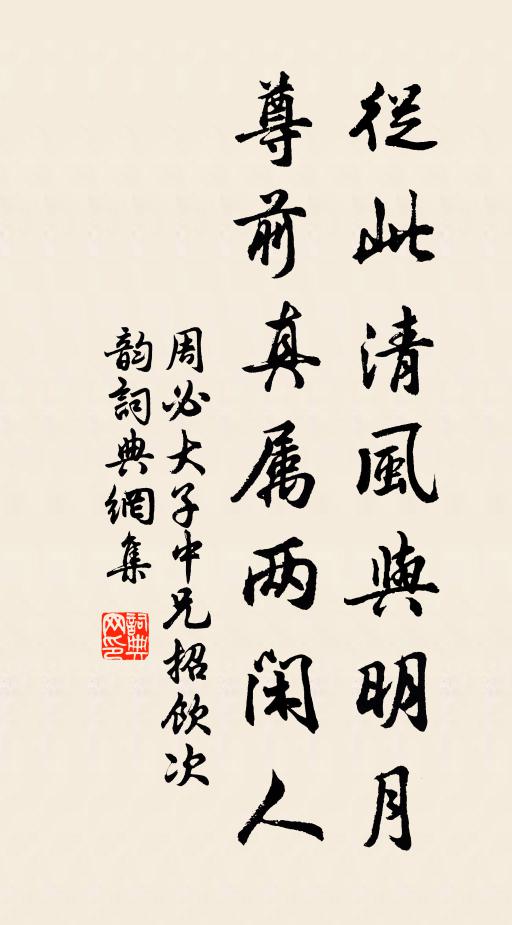 從此清風與明月
尊前真属两閑人
周必大子中兄招飲次
韵詞典網集
詞典
网印